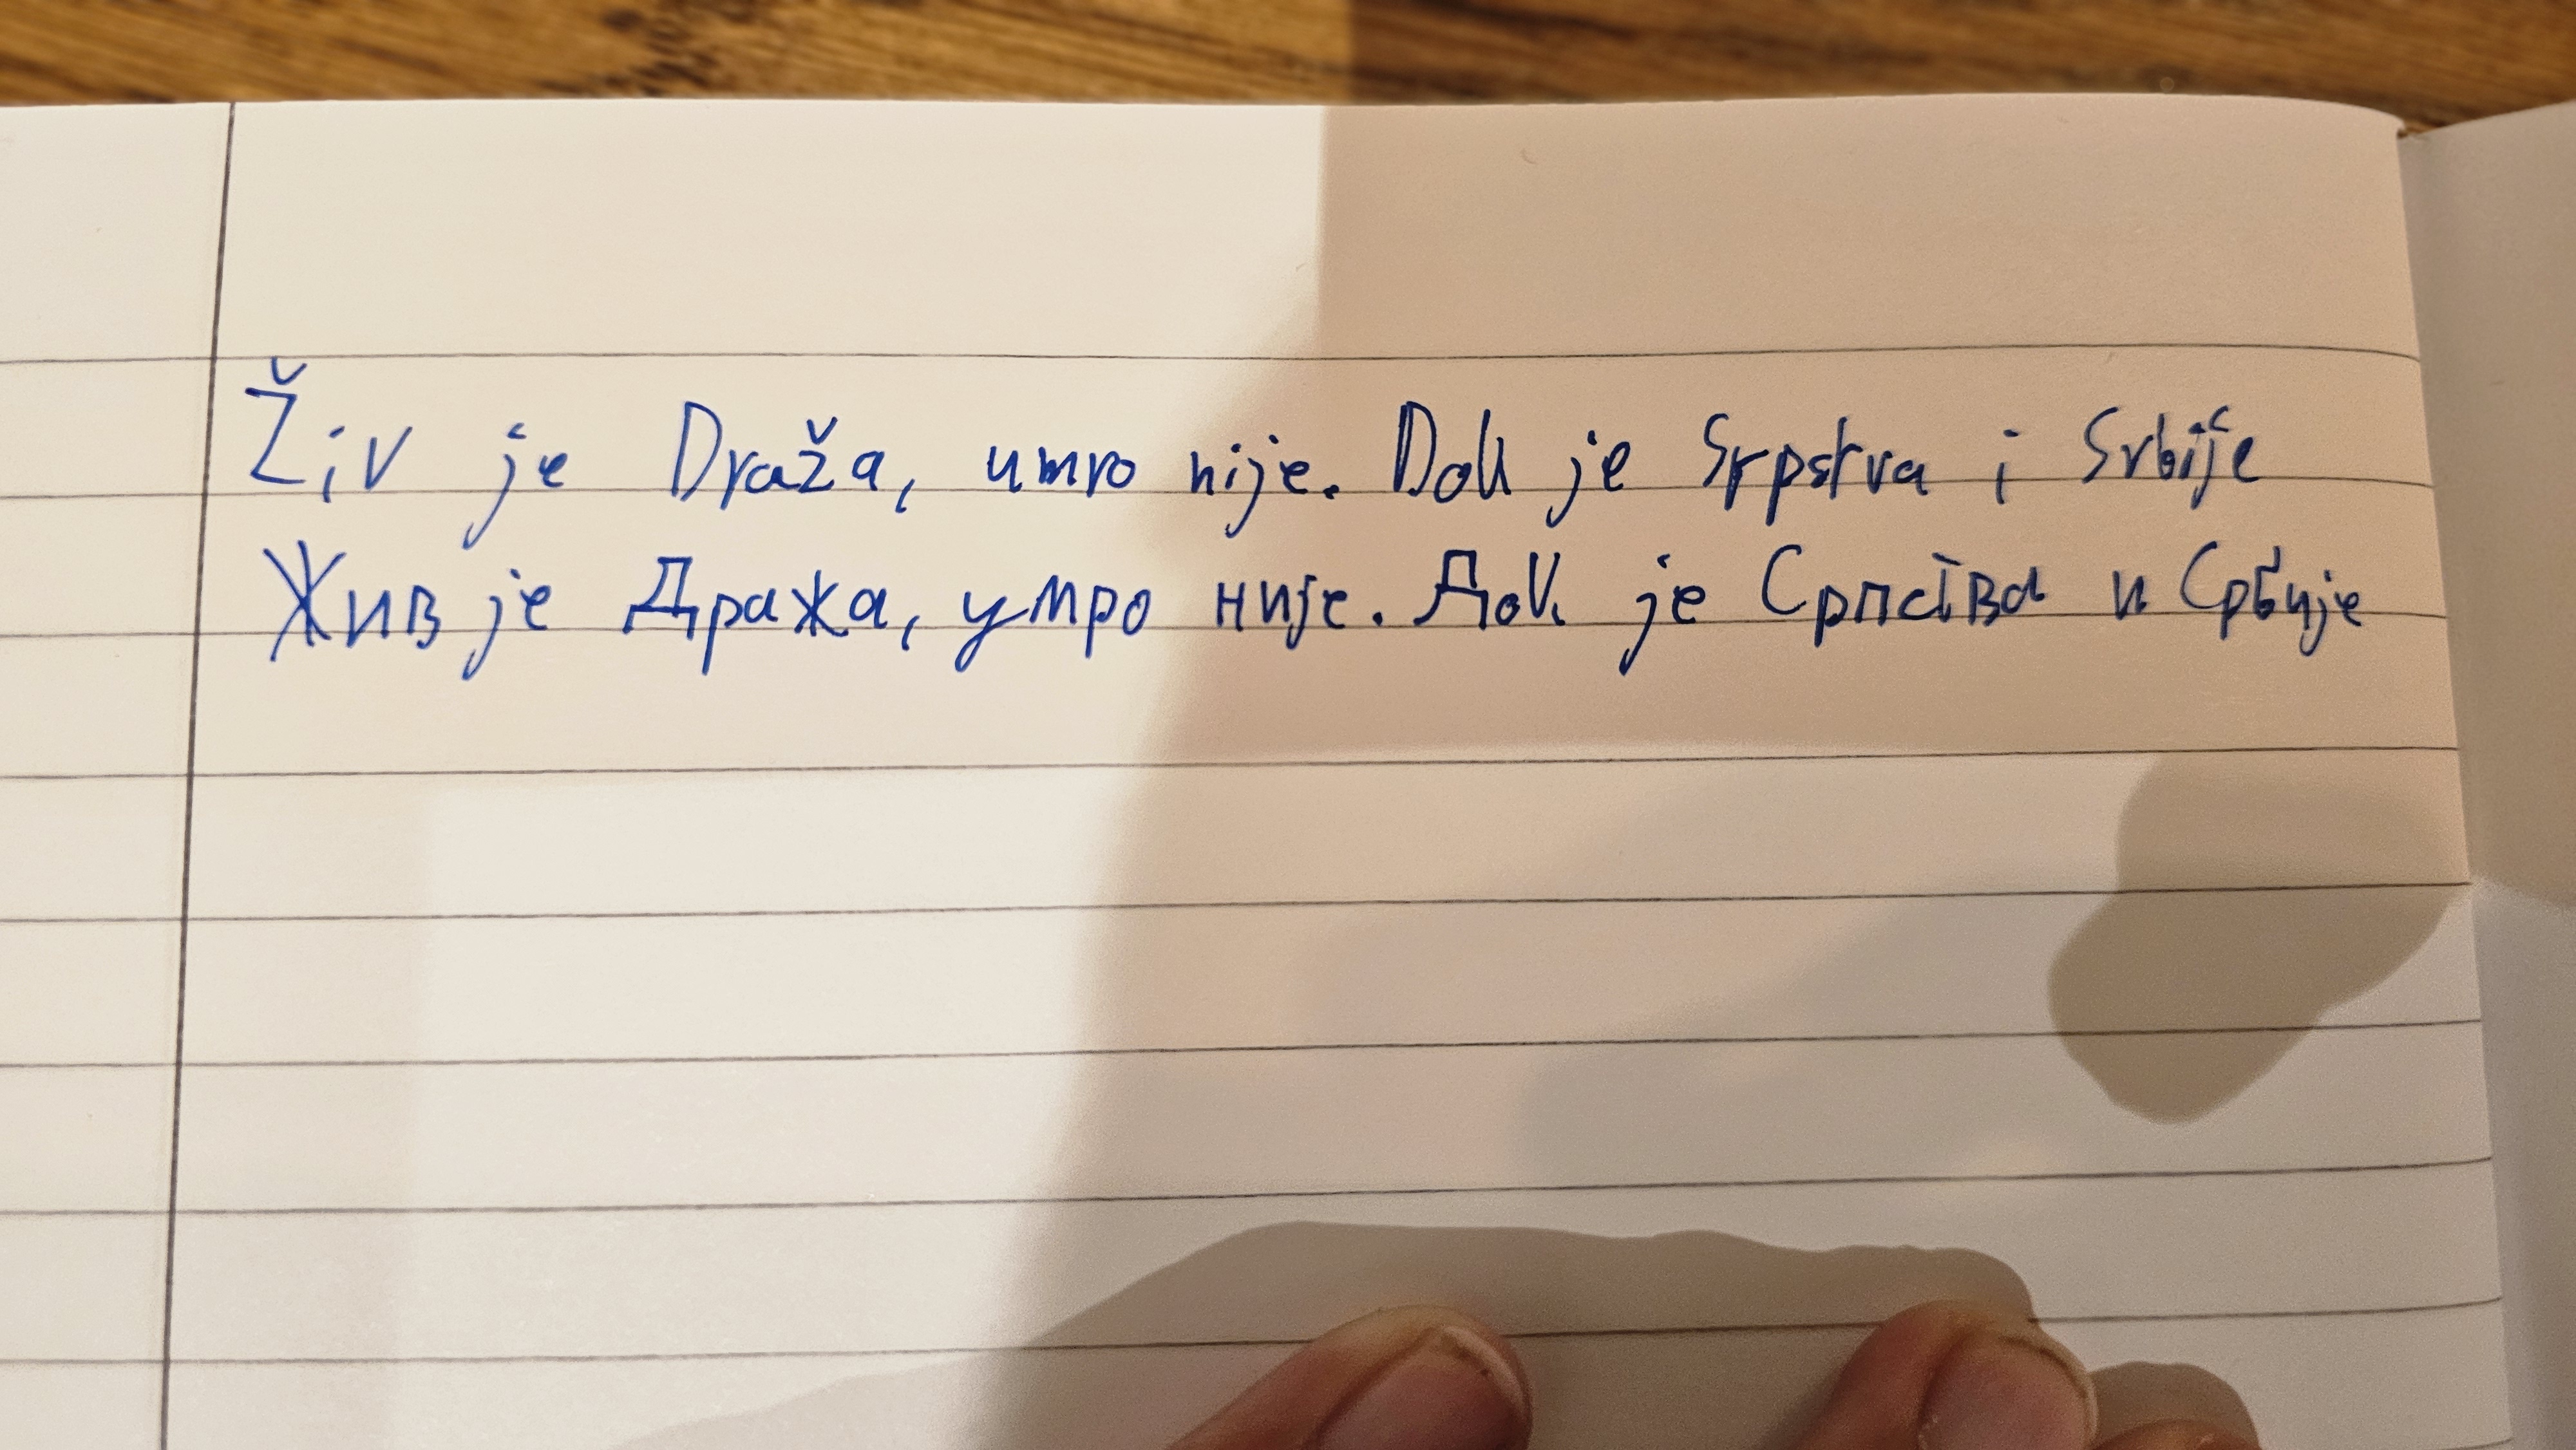 Živ je Draža, umro nije. Dok je Srpstva i Srbije
Жив је Дража, умро није. Док је Српства и Србије